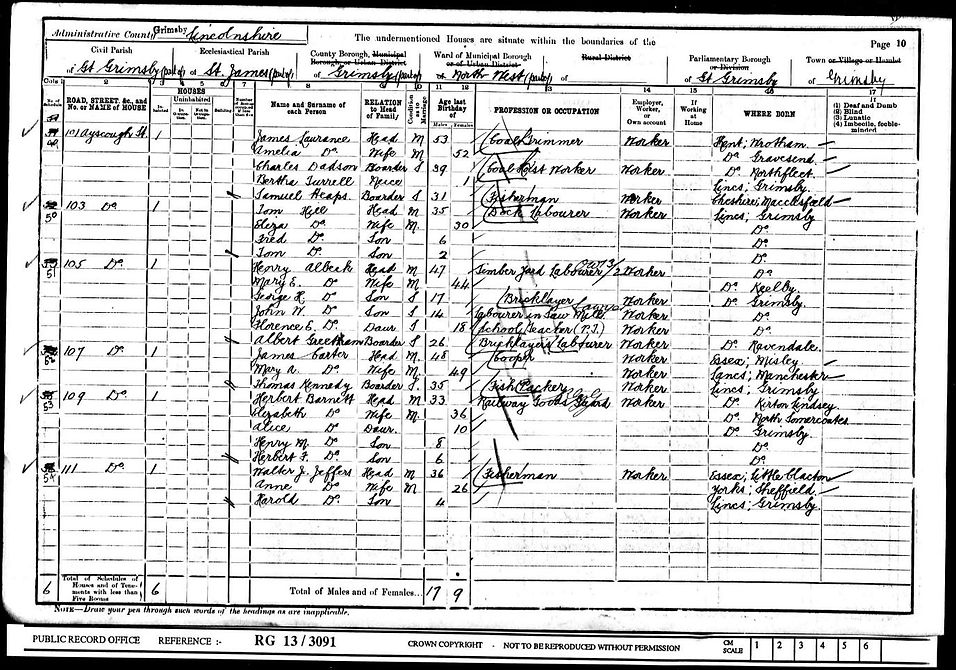 Administrative County Grimsby Lincolnshire
The undermentioned Houses are situate within the boundaries of the
Page 10
Civil Parish
Ecclesiastical Parish
County Borough, Municipal Borough, or Urban District
Ward of Municipal Borough or of Urban District
Rural District
Parliamentary Borough or Division
Town or Village or Hamlet
of Gt Grimsby (part of)
of St. James (part of)
of Grimsby (part of)
of North West (part of)
of
of Gt Grimsby
of Grimsby
Cols. 1 2 3 4 5 6 7 8 9 10 11 12 13 14 15 16 17
ROAD, STREET, &c., and No. or NAME of HOUSE
HOUSES
Uninhabited
Name and Surname of each Person
RELATION to Head of Family
Condition as to Marriage
Age last Birthday of
Males
Females
PROFESSION OR OCCUPATION
Employer, Worker, or Own account
If Working at Home
WHERE BORN
If
(1) Deaf and Dumb
(2) Blind
(3) Lunatic
(4) Imbecile, feeble-minded
101 Ayscough St. 1 James Laurance Head M 53 Coal Trimmer Worker Kent; Wrotham
Amelia Do Wife M 52 Do Gravesend
Charles Dadson Boarder S 39 Coal Hoist Worker Worker Do Northfleet
Bertha Turrell Neice 1 Lincs; Grimsby
Samuel Heaps Boarder S 31 Fisherman Worker Cheshire; Macclesfield
50 103 Do 1 Tom Hill Head M 35 Dock Labourer Worker Lincs; Grimsby
Eliza Do Wife M 30 Do
Fred Do Son 6 Do
Tom Do Son 2 Do
51 105 Do 1 Henry Head M 47 Timber Yard Labourer Worker Do
Mary E. Do Wife M 44 Do Keelby
George H. Do Son S 17 Bricklayer Worker Do Grimsby
John W. Do Son S 14 Labourer in Saw Mill Worker Do
Florence E. Do Daur S 18 School Teacher (P.T.) Worker Do
Albert Greetham Boarder S 26 Bricklayers Labourer Worker Do Ravendale
107 Do 1 James Carter Head M 48 Cooper Worker Essex; Misley
Mary A. Do Wife M 49 Worker Lancs; Manchester
Thomas Kennedy Boarder S 35 Fish Packer Worker Lincs; Grimsby
53 109 Do 1 Herbert Barnett Head M 33 Railway Goods Guard Worker Do Kirton Lindsey
Elizabeth Do Wife M 36 Do North Somercoates
Alice Do Daur. 10 Do Grimsby
Henry M. Do Son 8 Do
Herbert F. Do Son 6 Do
54 111 Do 1 Walter J. Jeffers Head M 36 Fisherman Worker Essex; Little Clacton
Anne Do Wife M 26 Yorks; Sheffield
Harold Do Son 4 Lincs; Grimsby
6 Total of Schedules of Houses and of Tenements with less than Five Rooms 6 Total of Males and of Females... 17 9
NOTE—Draw your pen through such words of the headings as are inapplicable.
PUBLIC RECORD OFFICE REFERENCE :- RG 13/3091 CROWN COPYRIGHT - NOT TO BE REPRODUCED WITHOUT PERMISSION CM SCALE 1 2 3 4 5 6